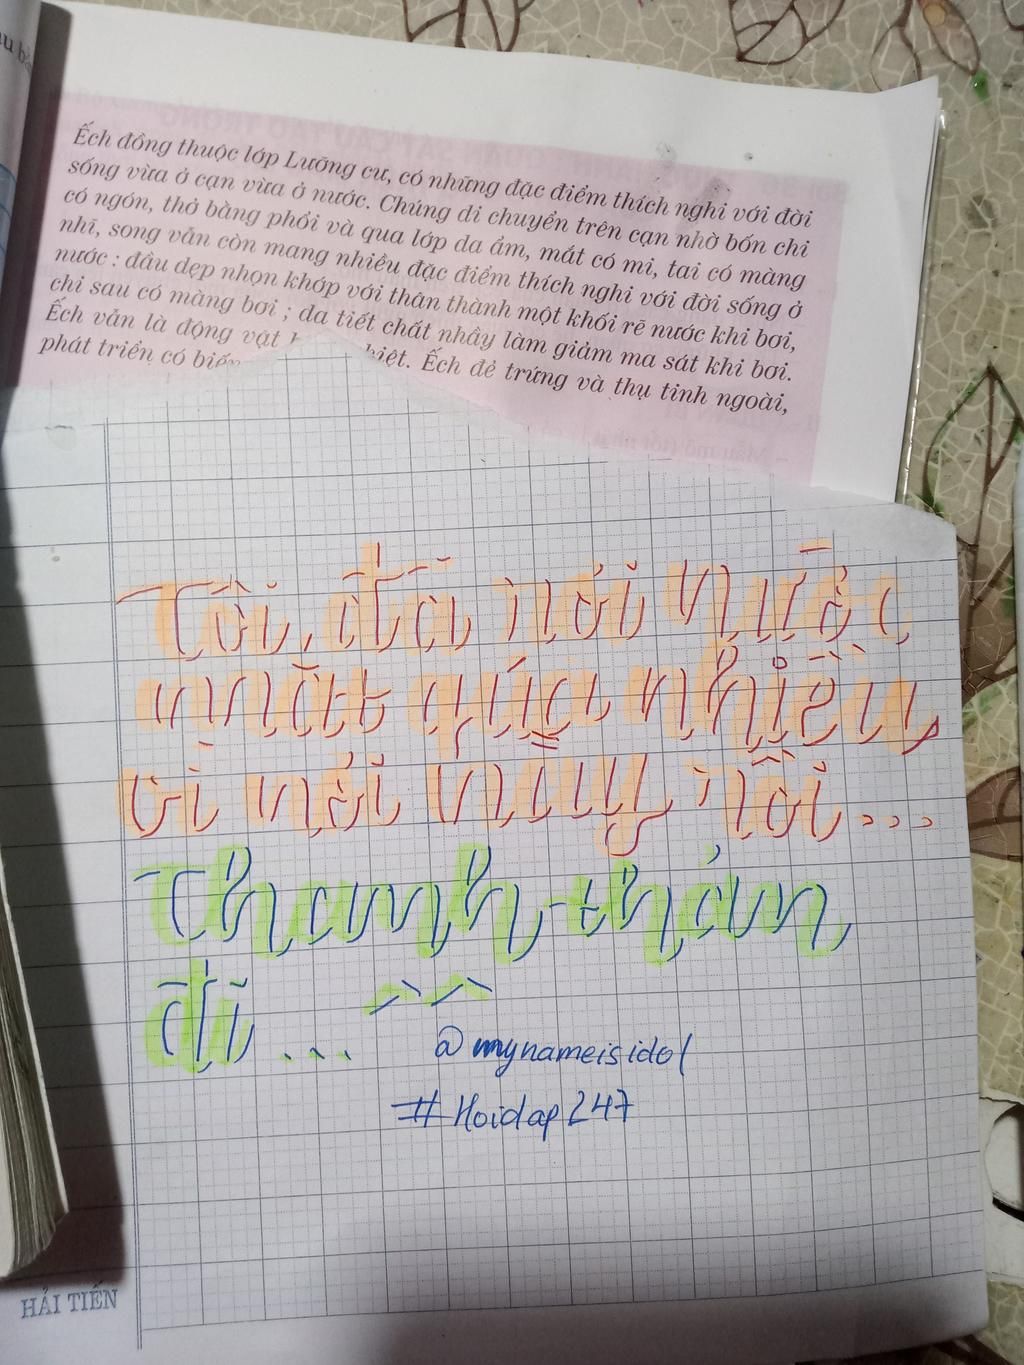 Ếch đồng thuộc lớp Lưỡng cư, có những đặc điểm thích nghi với đời
sống vừa ở cạn vừa ở nước. Chúng di chuyển trên cạn nhờ bốn chi
có ngón, thở bằng phổi và qua lớp da ẩm, mắt có mi, tai có màng
nhĩ, song vẫn còn mang nhiều đặc điểm thích nghi với đời sống ở
nước : đầu dẹp nhọn khớp với thân thành một khối rẽ nước khi bơi,
chi sau có màng bơi ; da tiết chất nhầy làm giảm ma sát khi bơi.
Ếch vẫn là động vật Ếch đẻ trứng và thụ tinh ngoài,
phát triển có
Tôi đã nói nước
mắt quá nhiều
vì nói này rồi...
Thanh thản
đi ... ^^
@mynameisidol
#Hoidap247
HẢI TIẾN